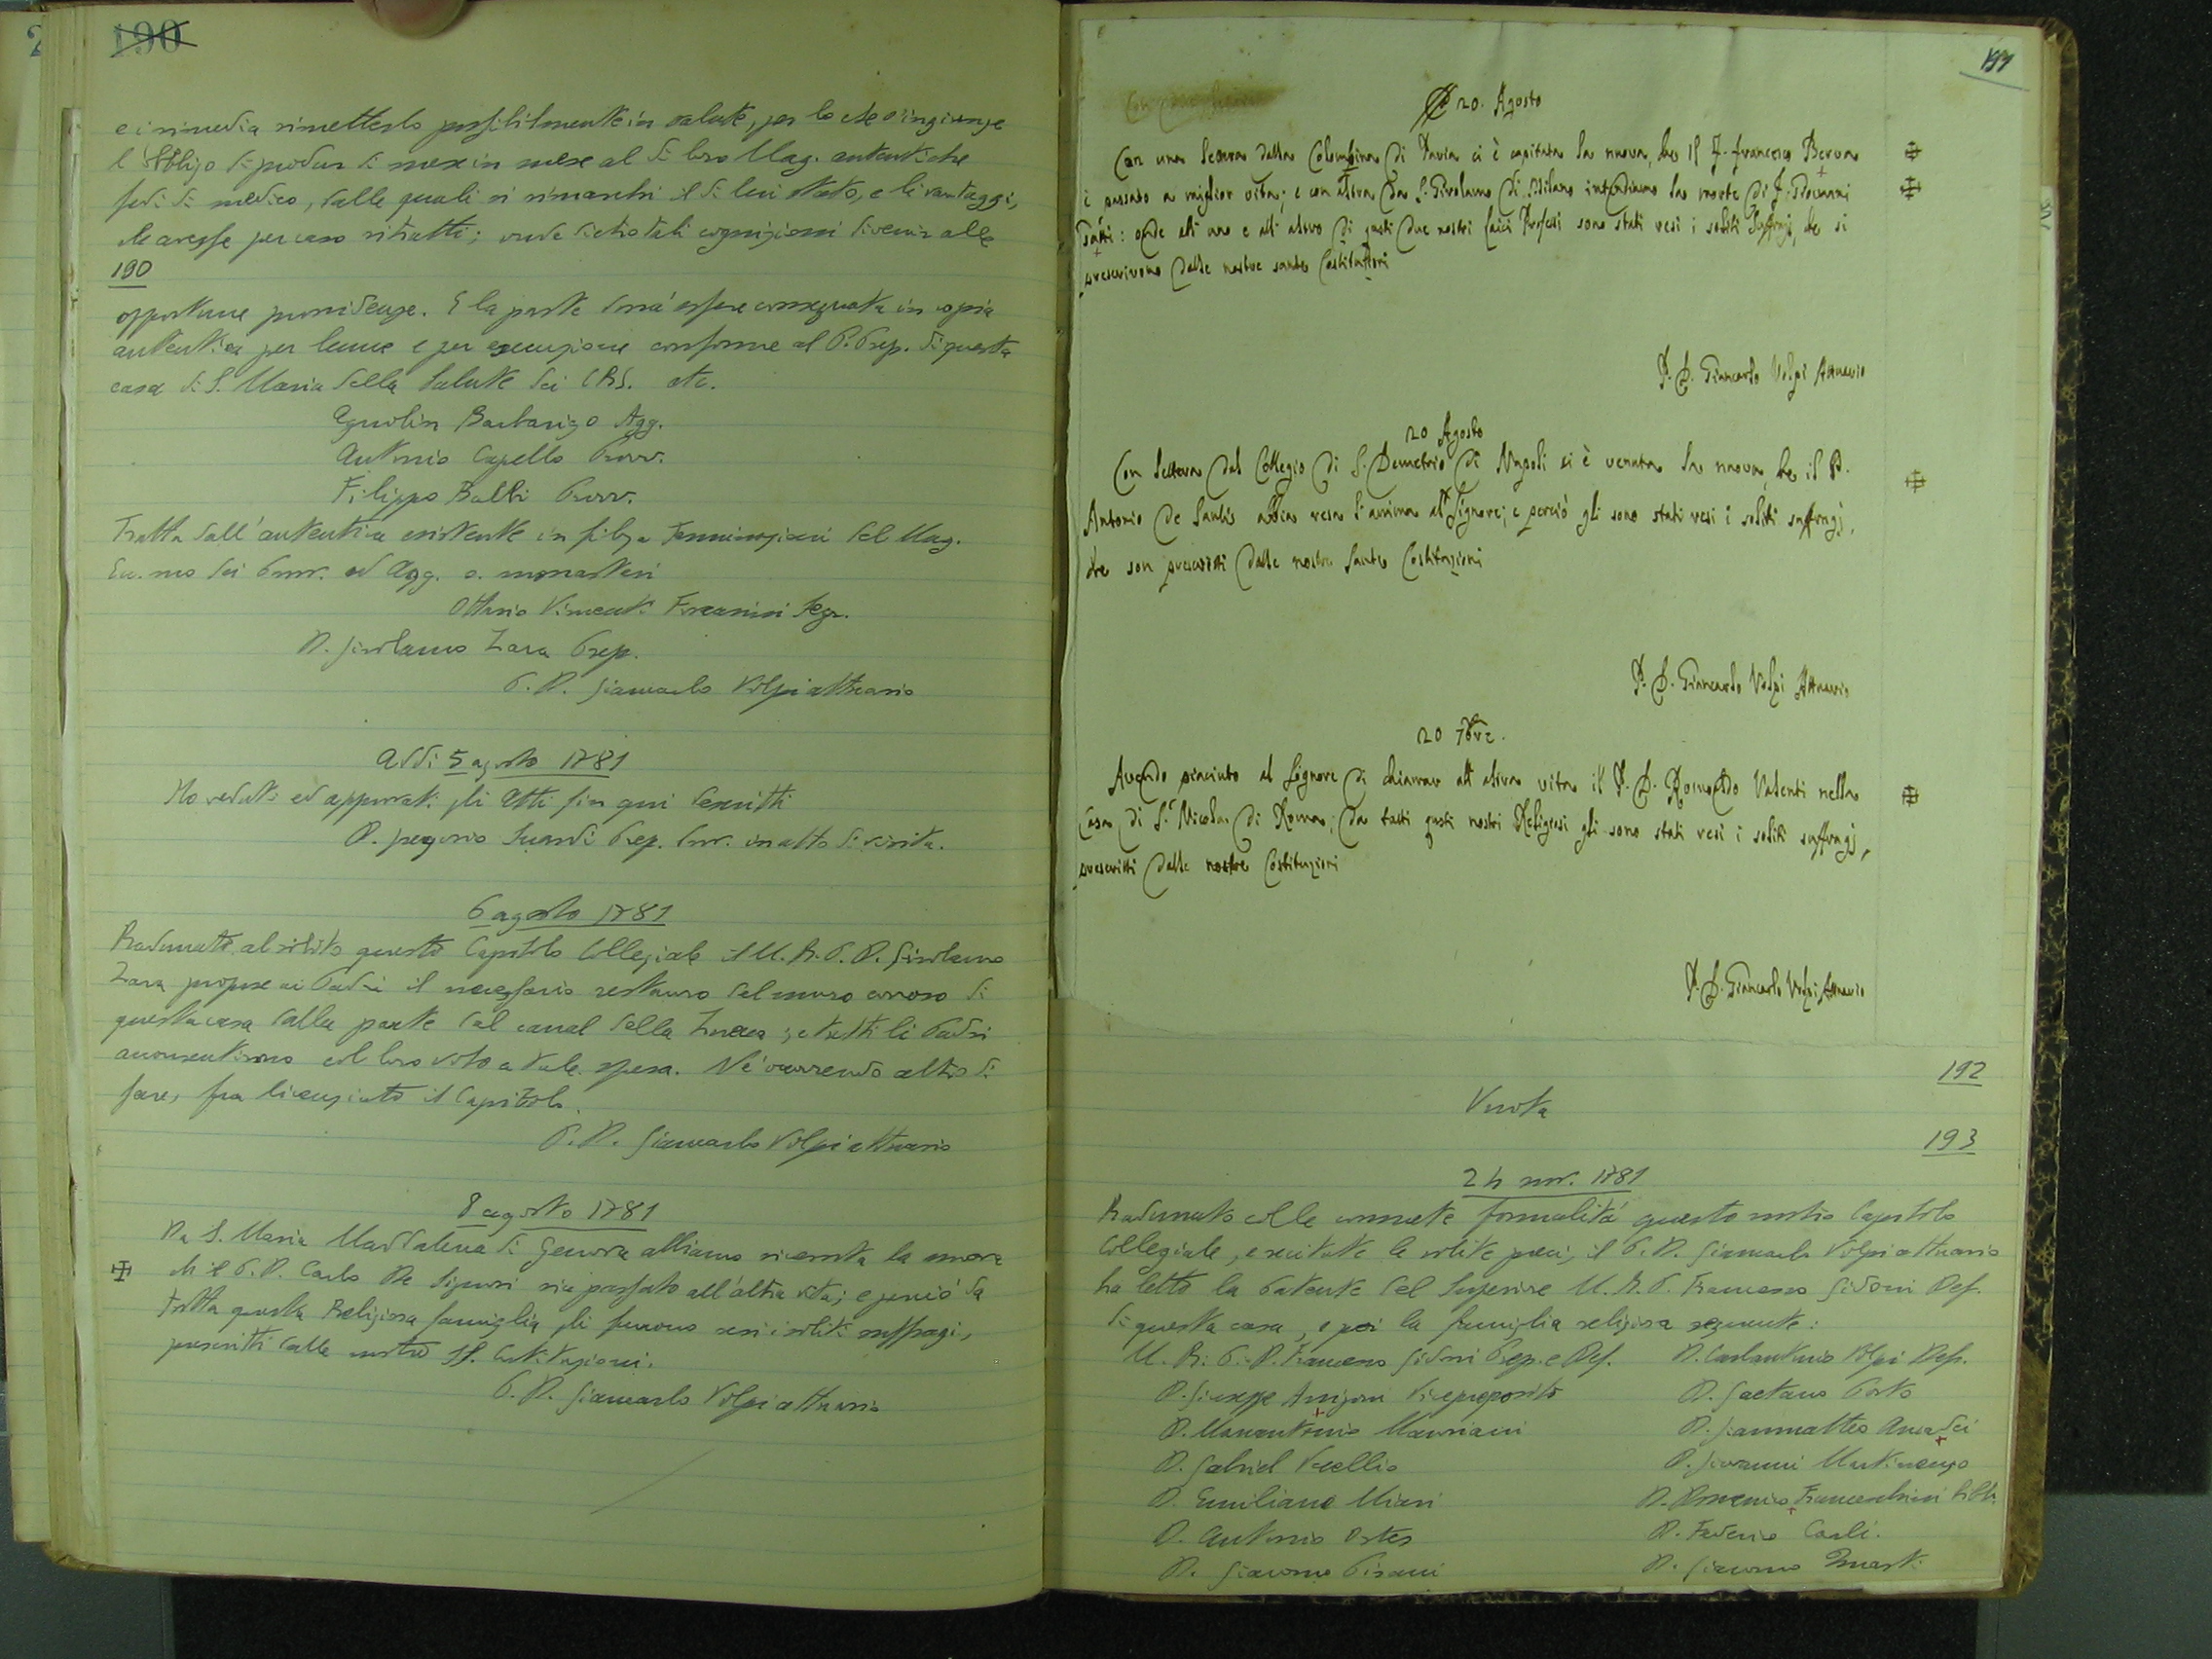 190
e i rimedia rimetterlo possibilmente in salute, per lo che s'ingiunge
l'obbligo di produr di mese in mese al di loro Mag. autentiche
fedi di medico, dalle quali si rimarchi il di lui stato, e li vantaggi,
che avesse per caso ritratti; onde dietro tali cognizioni divenir alle
190
opportune providenze. E la parte dovrà essere consegnata in copia
autentica per lume e per esecuzione conforme al P. Prep. di questa
casa di S. Maria della Salute dei CRS. etc.
Barbarigo Agg.
Antonio Capello Provv.
Filippo Balbi Provv.
Tratta dall'autentica esistente in filza Terminazioni del Mag.
Ecc.mo dei Provv. ed Agg. s. monasteri
Ottavio Vincenti Foscarini Segr.
D. Girolamo Zara Prep.
P. D. Giancarlo Volpi attuario
Addì 5 agosto 1781
Ho veduti ed approvati gli Atti fin qui descritti
D. Suardi Prep. Prov. in atto di visita.
6 agosto 1781
Radunato al solito questo Capitolo Collegiale il M. R. P. D. Girolamo
Zara propose ai Padri il necessario restauro del muro corroso di
questa casa dalla parte del canal della Zuecca; e tutti li Padri
acconsentirono col loro voto a tale spesa. Nè occorrendo altro di
fare, fu licenziato il Capitolo.
P. D. Giancarlo Volpi attuario
8 agosto 1781
Da S. Maria Maddalena di Genova abbiamo ricevuta la nuova
che il P. D. Carlo De Signori sia passato all'altra vita; e perciò da
tutta questa Religiosa famiglia gli furono resi i soliti suffragi,
prescritti dalle nostre SS. Costituzioni.
P. D. Giancarlo Volpi attuario
191
20. Agosto
Con una lettera dalla Colombina di Pavia ci è capitata la nuova, che il F. Francesco Berva
è passato a miglior vita; e con altra da S. Girolamo di Milano intendiamo la morte di F. Giovanni
: onde all'uno e all'altro di questi due nostri Laici Professi sono stati resi i soliti Suffragj, che si
prescrivono dalle nostre sante Costituzioni
P. D. Giancarlo Volpi Attuario
20 Agosto
Con lettera dal Collegio di S. Demetrio di Napoli si è venuta la nuova, che il P.
Antonio de Sanctis abbia resa l'anima al Signore; e perciò gli sono stati resi i soliti suffragj,
che son prescritti dalle nostre Sante Costituzioni
P. D. Giancarlo Volpi Attuario
20 7bre.
Avendo piaciuto al Signore di chiamar all'altra vita il P. D. Romualdo Valenti nella
Casa di S. Nicola di Roma, da tutti questi nostri Religiosi gli sono stati resi i soliti suffragj,
prescritti dalle nostre Costituzioni
P. D. Giancarlo Volpi Attuario
192
Vuota
193
24 nov. 1781
Radunato colle consuete formalità questo nostro Capitolo
Collegiale, e recitate le solite preci, il P. D. Giancarlo Volpi attuario
ha letto la Patente del Superiore M. R. P. Francesco Gidoni Def.
di questa casa, e poi la famiglia religiosa seguente:
M. R. P. D. Francesco Gidoni Prep. e Def.
D. Carlantonio Volpi Def.
D. Giuseppe Arrigoni Vicepreposito
D. Gaetano Porto
D. Marcantonio
D. Gianmatteo
D. Gabriel Vecellio
D. Giovanni Martinengo
D. Emiliano Miari
D. Domenico Franceschini bibl.
D. Antonio Ortes
D. Federico Carli.
D. Giacomo Pisani
D. Giacomo